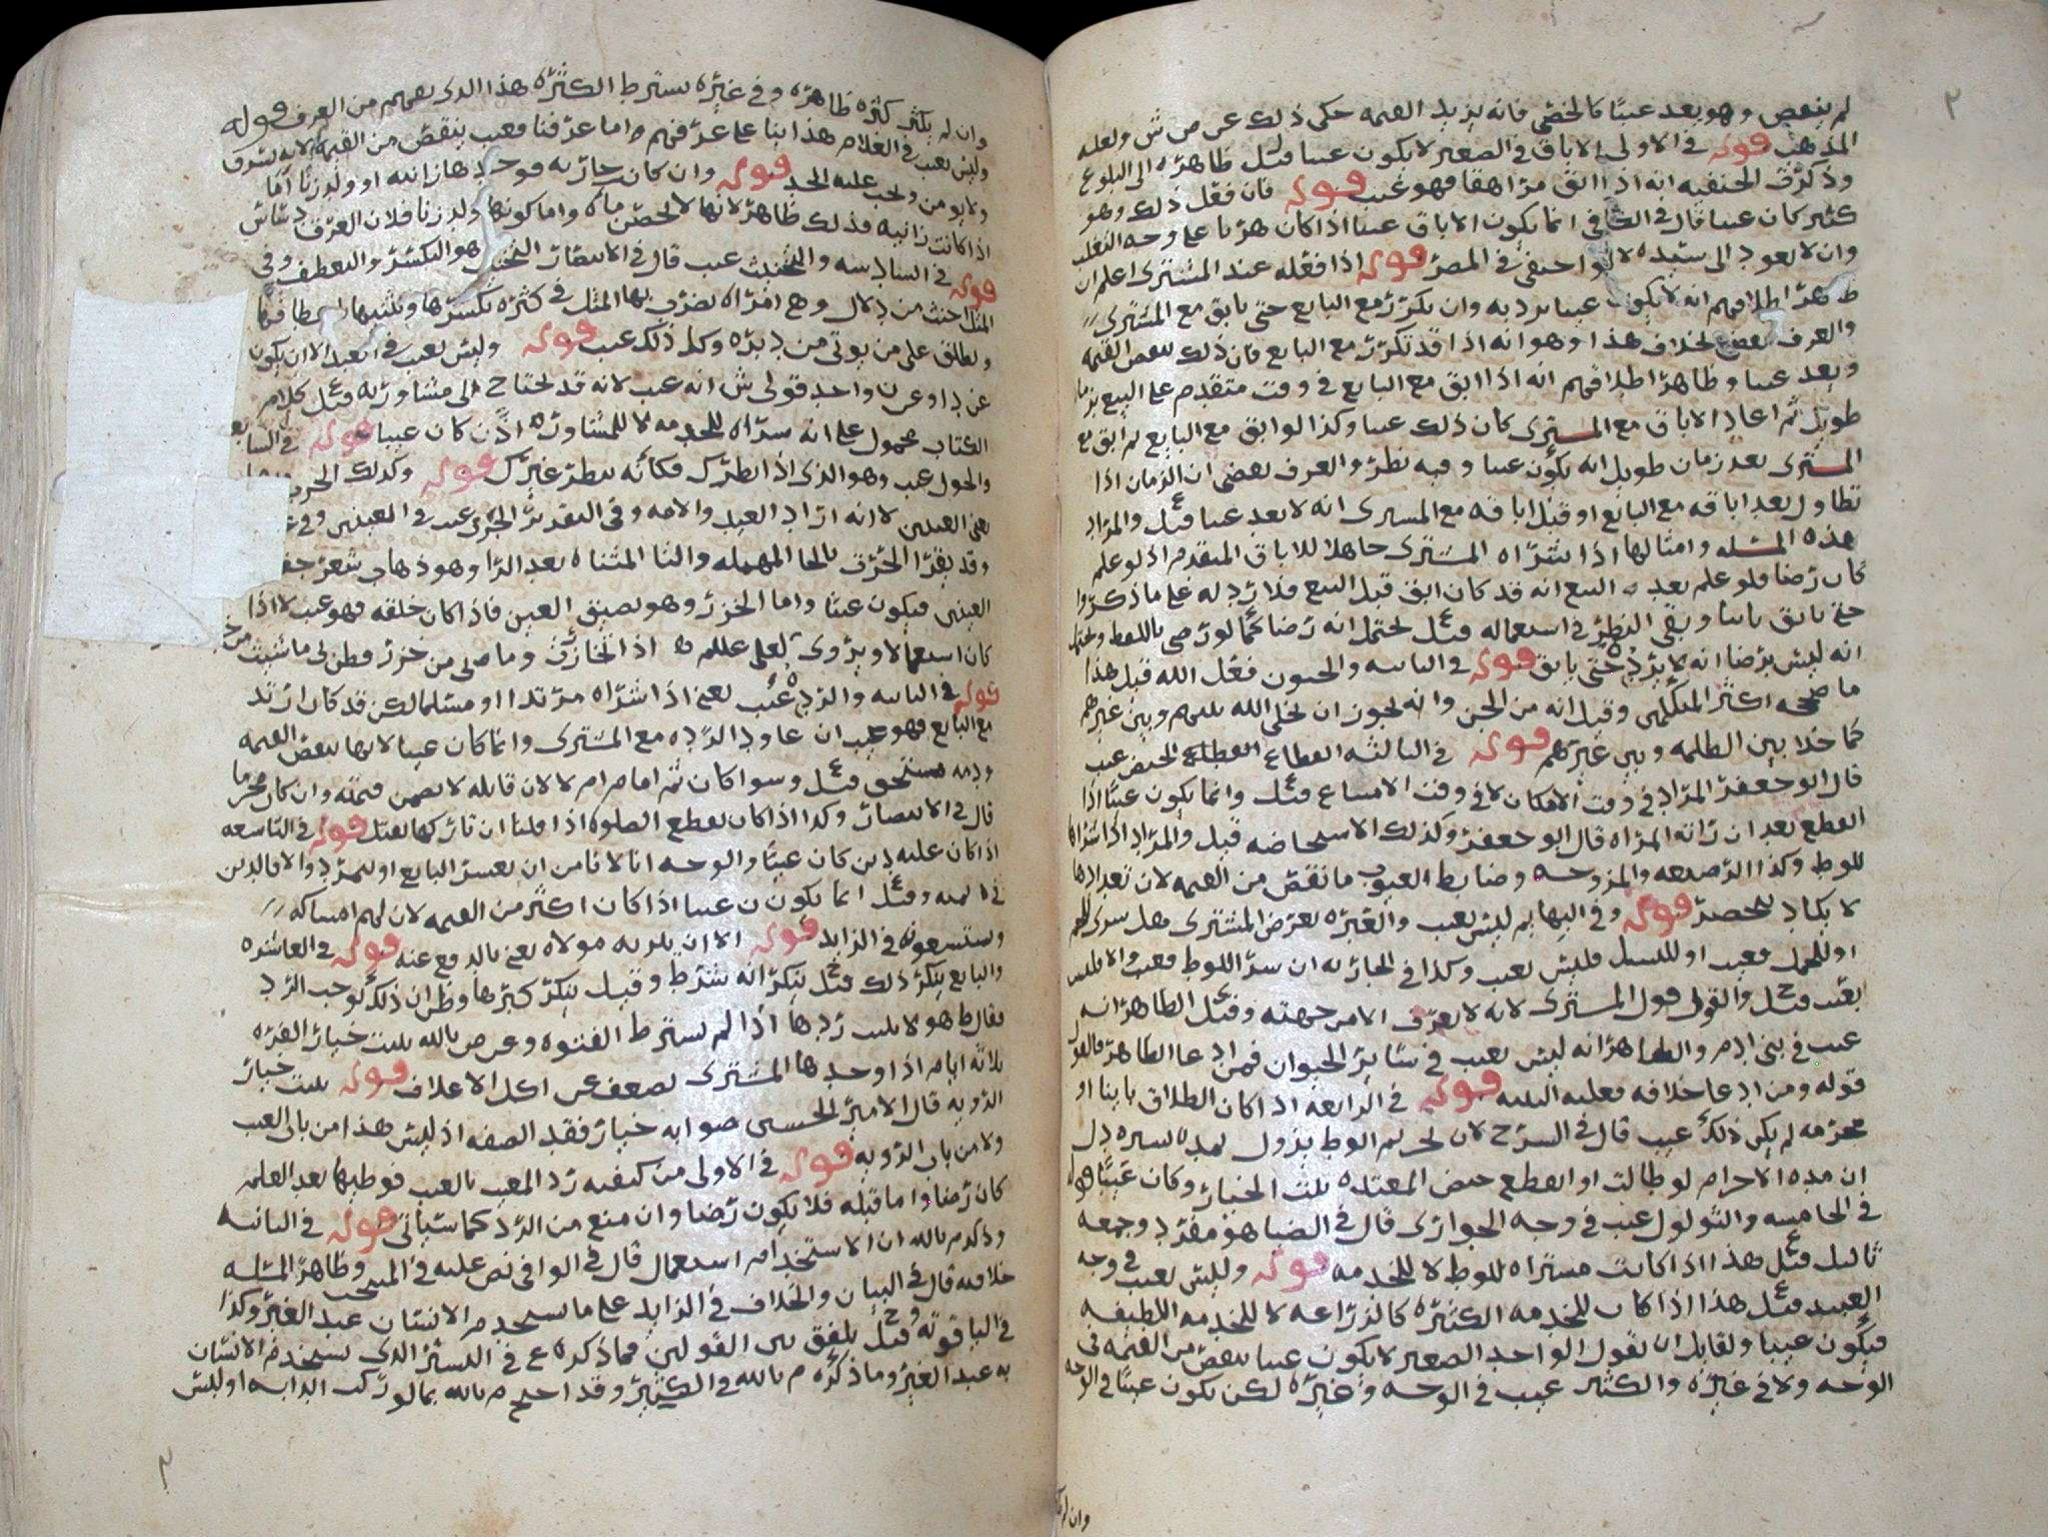 لم ينقص وهو يعد عيبا كالخصي فانه يزيد القيمه حكى ذلك عن ص ش ولعله
المذهب قوله في الاولى الاباق في الصغير لا يكون عيبا قيل ظاهره الى البلوغ
وذكر في الحنفيه انه اذا ابق مراهقا فهو عيب قوله فان فعل ذلك وهو
كبير كان عيبا قال في الكافي انما يكون الاباق عيبا اذا كان هربا على وجه التغلب
وان لا يعود الى سيده لا لو اختفى في المصر قوله اذا فعله عند المشتري اعلم ان
ظاهر اطلاقهم انه لا يكون عيبا يرد به وان تكرر مع البايع حتى يابق مع المشتري
والعرف يقضي بخلاف هذا وهو انه اذا قد تكرر مع البايع فان ذلك ينقص القيمه
ويعد عيبا وظاهر اطلاقهم انه اذا ابق مع البايع في وقت متقدم على البيع بزمان
طويل ثم اعاد الاباق مع المشتري كان ذلك عيبا وكذا لو ابق مع البايع ثم ابق مع
المشتري بعد زمان طويل انه يكون عيبا وفيه نظر والعرف يقضي ان الزمان اذا
تطاول بعد اباقه مع البايع او قبل اباقه مع المشتري انه لا يعد عيبا قيل والمراد
بهذه المسئله وامثالها اذا شراه المشتري جاهلا للاباق المتقدم اذ لو علم
كان رضا فلو علم بعد البيع انه قد كان ابق قبل البيع فلا رد له على ما ذكروا
حتى يابق ثانيا وبقي النظر في استعماله قيل يحتمل انه رضا كما لو رضي باللفظ ويحتمل
انه ليس برضا انه لا يرد حتى يابق قوله في الثانيه والجنون فعل الله قيل هذا
ما صححه اكثر المتكلمين وقيل انه من الجن وانه يجوز ان يخلي الله بينهم وبين غيرهم
كما خلا بين الظلمه وبين غيرهم قوله في الثالثه انقطاع الحيض عيب
قال ابو جعفر المراد في وقت الامكان لا في وقت الامتناع قيل وانما يكون عيبا اذا
انقطع بعد ان راته المراه قال ابو جعفر وكذلك الاستحاضه قيل والمراد اذا شراها
للوطئ وكذا الرضيعه والمزوجه وضابط العيوب ما نقص من القيمه لان تعدادها
لا يكاد ينحصر قوله وفي البهايم ليس بعيب والعبره بغرض المشتري هل شرى للحم
او للحمل فعيب او للنسل فليس بعيب وكذا في الجاريه ان شرا للوطئ فعيب والا فليس
بعيب قيل والقول قول المشتري لانه لا يعرف الا من جهته وقيل الظاهر انه
عيب في بني ادم والظاهر انه ليس بعيب في ساير الحيوان فمن ادعا الظاهر فالقول
قوله ومن ادعا خلافه فعليه البينه قوله في الرابعه اذا كان الطلاق باينا او
محرمه لم يكن ذلك عيب قال في الشرح لان تحريم الوطئ يزول لمده يسيره دل
ان مده الاحرام لو طالت او انقطع حيض المعتده ثبت الخيار وكان عيبا قوله
في الخامسه والثولول عيب في وجه الجواري قال في الضيا هو مفرد وجمعه
ثاليل قيل هذا اذا كانت مشتراه للوطئ لا للخدمه قوله وليس بعيب في وجه
العبيد قيل هذا اذا كان للخدمه الكبيره كالزراعه لا للخدمه اللطيفه
فيكون عيبا ولقايل ان يقول الواحد الصغير لا يكون عيبا ينقص من القيمه في
الوجه ولا في غيره والكثير عيب في الوجه وغيره لكن يكون عيبا في الوجه
وان لم
وان لم يكثر كثره ظاهره وفي غيره يشترط الكثره هذا الذي يفهم من العرف قوله
وليس بعيب في الغلام هذا بنا على عرفهم واما عرفنا فعيب ينقص من القيمه لانه يسرف
ولا يومن ويجب عليه الحد قوله وان كان جاريه فوجدها زانيه او ولد زنا اما
اذا كانت زانيه فذلك ظاهر لانها لا تحصن ماه واما كونها ولد زنا فلان العرق دساس
قوله في السادسه والتخنيث عيب قال في الانتصار التخنث هو التكسر والتعطف وفي
المثل اخنث من دلال وهي امراه يضرب بها المثل في كثره تكسرها وتثنيها
ويطلق على من يوتى من دبره وكل ذلك عيب قوله وليس بعيب في العبد الا ان يكون
واحد قولي ش انه عيب لانه قد يحتاج الى مشاورته قيل كلام
الكتاب محمول على انه شراه للخدمه لا للمشاوره اذن كان عيبا قوله في السابعه
والحول عيب وهو الذي اذا نظرك فكانه ينظر غيرك قوله وكذلك الخزر
لا انه اراد العبد والامه وفي التقرير الخزر عيب في العينين وفي
وقد يقرا الحرت بالحا المهمله والتا المثناه بعد الرا وهو ذهاب شعر جفن
العينين فيكون عيبا واما الخزر وهو ضيق العين فاذا كان خلقه فهو عيب لا اذا
كان استعمالا ويروى لعلي عليلم اذا تخازرت وما بي من خزر
قوله في الثامنه والرده عيب يعني اذا شراه مرتدا او مسلما لكن قد كان ارتد
مع البايع فهو عيب ان عاود الرده مع المشتري وانما كان عيبا لانها تنقص القيمه
ودمه مستحق قيل وسوا كان ثم امام ام لا لان قاتله لا يضمن قيمته وان كان محرما
قال في الانتصار وكذا اذا كان يقطع الصلوه اذا قلنا ان تاركها يقتل قوله في التاسعه
اذا كان عليه دين كان عيبا والوجه انا لا نامن ان يعسر البايع او يتمرد والا فالدين
في ذمته وقيل انما يكون عيبا اذا كان اكثر من القيمه لان لهم امساكه
ويستسعونه في الزايد قوله الا ان يلتزمه مولاه يعني بالدفع عنه قوله في العاشره
والبايع ينكر ذلك قيل ينكر انه شرط وقيل ينكر كبرها وظن ان ذلك يوجب الرد
يقال ط هو لا يثبت ردها اذا لم يشترط الفتوه وعرض بالله يثبت خيار الغره
ثلاثه ايام اذا وجدها المشتري تضعف عن اكل الاعلاف قوله يثبت خيار
الرويه قال الامير الحسين صوابه خيار فقد الصفه اذ ليس هذا من باب العيب
ولا من باب الرويه قوله في الاولى من كيفيه رد المعيب بالعيب فوطيها بعد العلم
كان رضا واما قبله فلا يكون رضا وان منع من الرد كما سياتي قوله في الثانيه
وذكر م بالله ان الاستخدام استعمال قال في الوافي نص عليه في المنتخب وظاهر المسئله
خلافه قال في البيان والخلاف في الزايد على ما يستخدم الانسان عبد الغير وكذا
في الياقوته وقيل يلفق بين القولين فما ذكره ع في اليسير الذي يستخدم الانسان
به عبد الغير وما ذكره م بالله في الكثير وقد احتج م بالله بما لو ركب الدابه او لبس